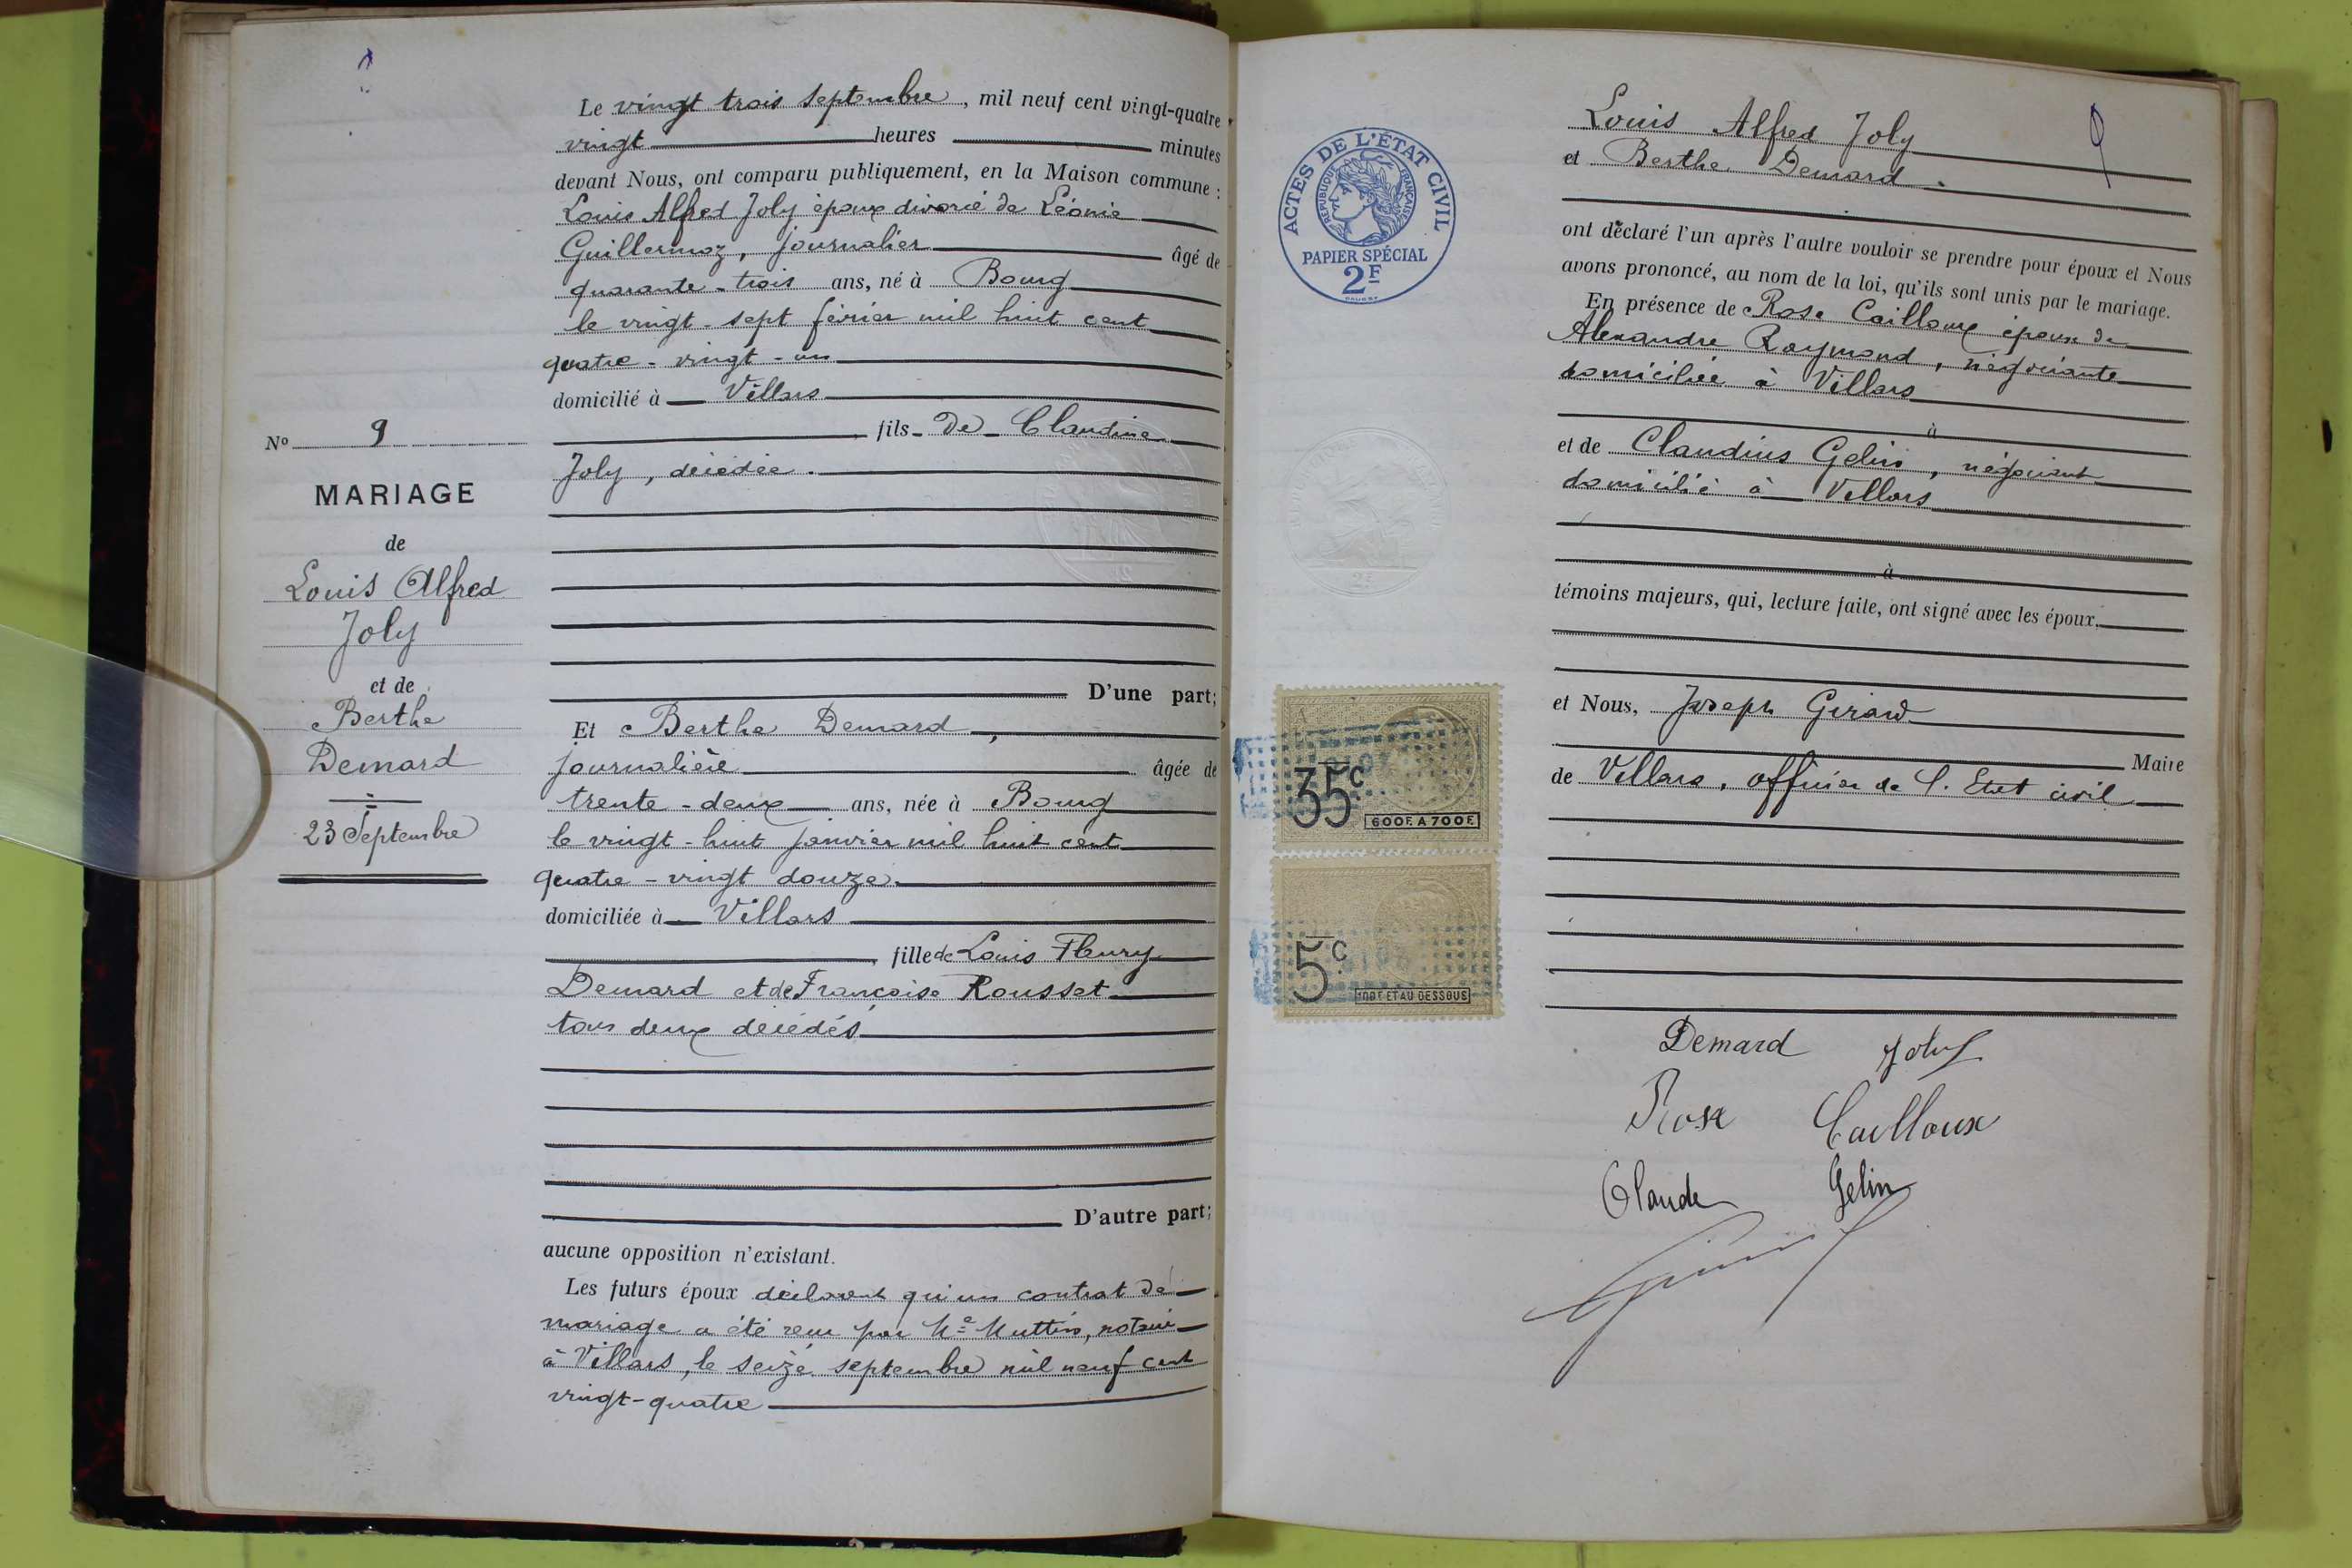 Le vingt trois septembre, mil neuf cent vingt-quatre
vingt heures minutes
devant Nous, ont comparu publiquement, en la Maison commune :
Louis Alfred Joly époux divorcé de Léonie
Guillermoz, journalier âgé de
quarante-trois ans, né à Bourg
le vingt-sept février mil huit cent
quatre-vingt-un
domicilié à Villars
fils de Claudine
Joly, décédée.
D'une part;
Et Berthe Demard,
journalière âgée de
trente-deux ans, née à Bourg
le vingt-huit janvier mil huit cent
quatre-vingt douze.
domiciliée à Villars
fille de Louis Fleury
Demard et de Françoise Rousset
tous deux décédés
D'autre part;
aucune opposition n'existant.
Les futurs époux déclarent qu'un contrat de
mariage a été reçu par Me Muttin, notaire
à Villars, le seize septembre mil neuf cent
vingt-quatre
No 9
MARIAGE
de
Louis Alfred
Joly
et de
Berthe
Demard
23 Septembre
ACTES DE L'ÉTAT CIVIL
RÉPUBLIQUE FRANÇAISE
PAPIER SPÉCIAL
2F
35c
600F. A 700F.
5c
100F ET AU DESSOUS
9
Louis Alfred Joly
et Berthe Demard.
ont déclaré l'un après l'autre vouloir se prendre pour époux et Nous
avons prononcé, au nom de la loi, qu'ils sont unis par le mariage.
En présence de Rose Cailloux épouse de
Alexandre Raymond, négociante
domiciliée à Villars
à
et de Claudius Gelin, négociant
domicilié à Villars
à
témoins majeurs, qui, lecture faite, ont signé avec les époux,
et Nous, Joseph Girard
Maire
de Villars, officier de l'Etat civil
Demard Joly
Rose Cailloux
Claude Gelin